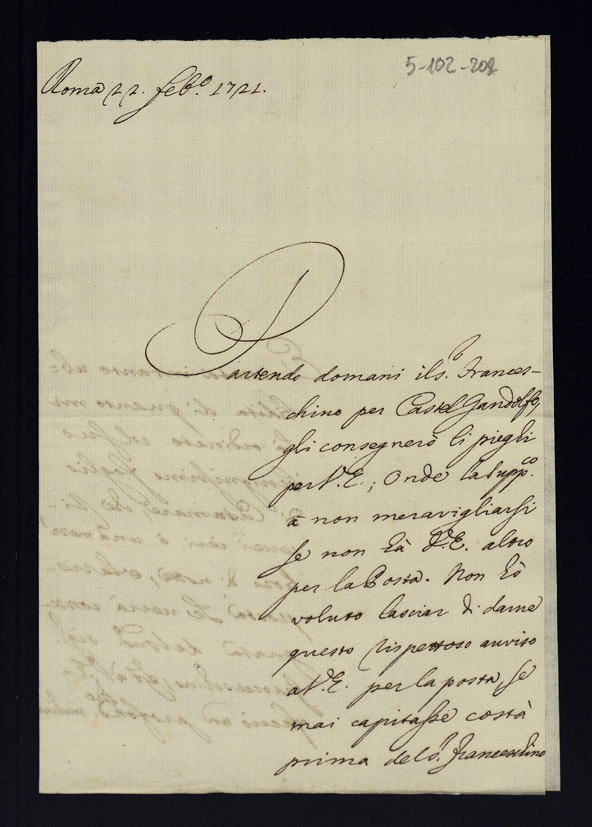 5-102-202
Roma 22. feb.º 1721.
Partendo domani il S.r Frances-
chino per Castel Gandolfo,
gli consegnerò li piegli
per V.E.; Onde la supp.co
à non meravigliarsi
se non hà V.E. altro
per la Posta. Non hò
voluto lasciar di darne
questo rispettoso avviso
a V.E. per la posta, se
mai capitasse costà
prima del S.r Franceschino